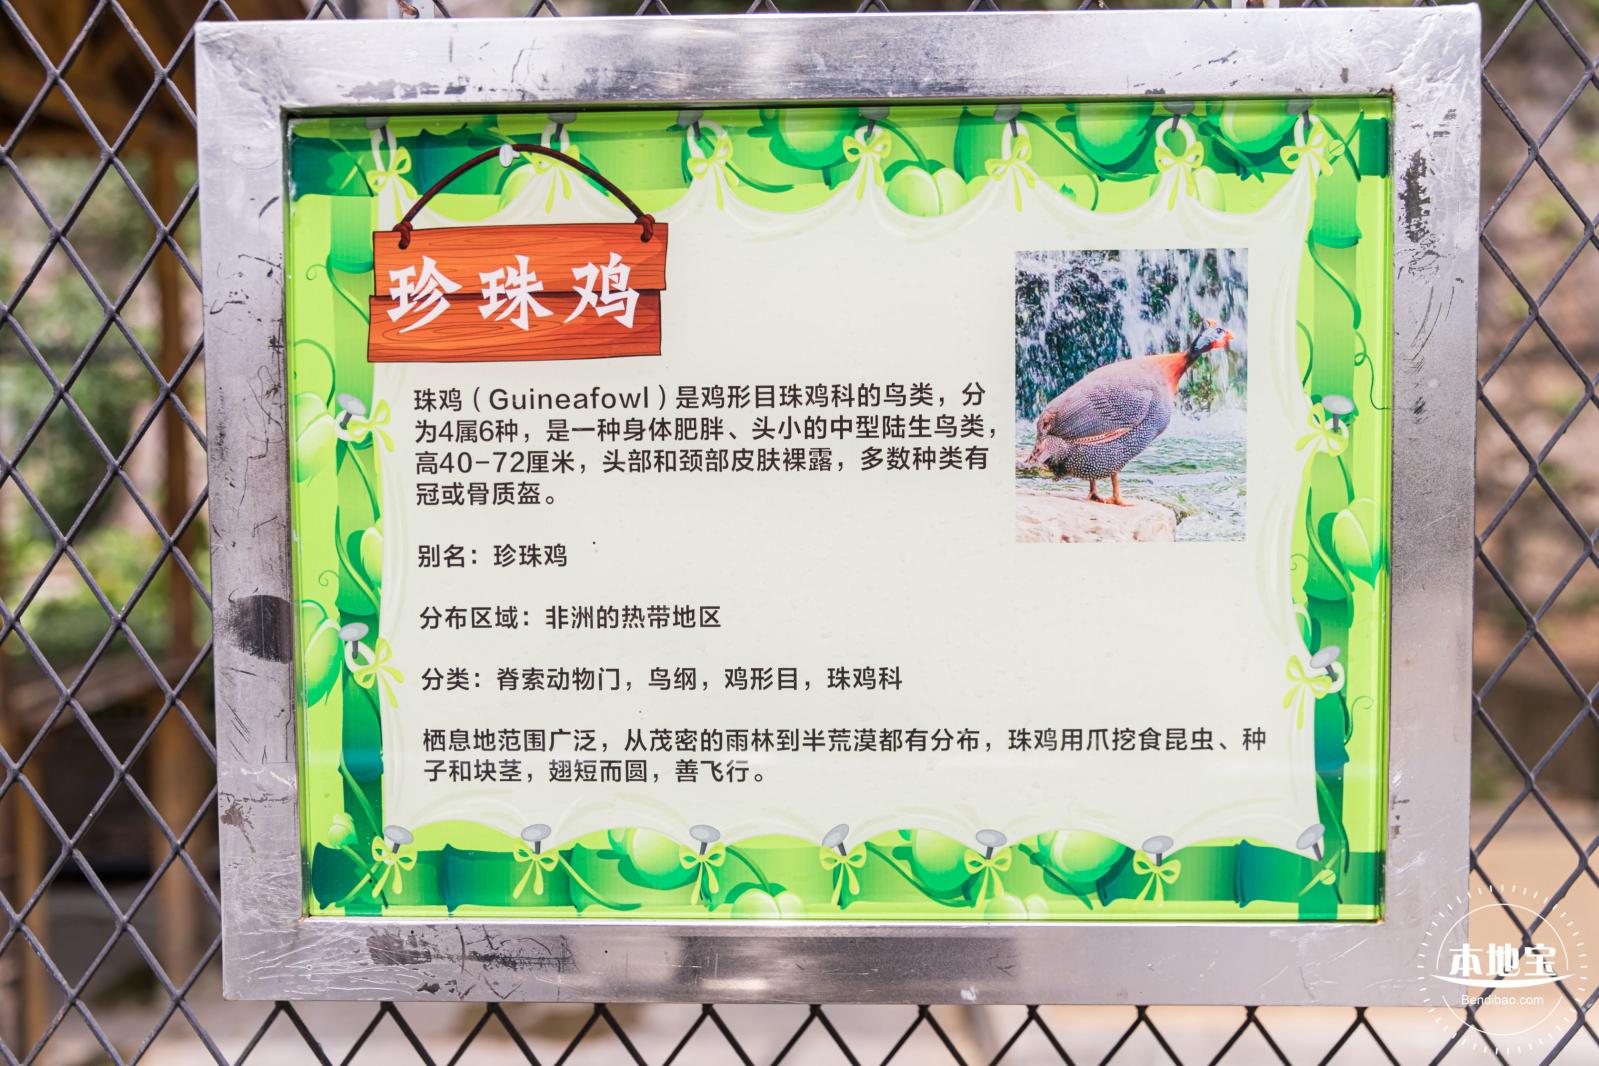 珍珠鸡
珠鸡（Guineafowl）是鸡形目珠鸡科的鸟类，分
为4属6种，是一种身体肥胖、头小的中型陆生鸟类，
高40-72厘米，头部和颈部皮肤裸露，多数种类有
冠或骨质盔。
别名：珍珠鸡
分布区域：非洲的热带地区
分类：脊索动物门，鸟纲，鸡形目，珠鸡科
栖息地范围广泛，从茂密的雨林到半荒漠都有分布，珠鸡用爪挖食昆虫、种
子和块茎，翅短而圆，善飞行。
本地宝
Bendibao.com